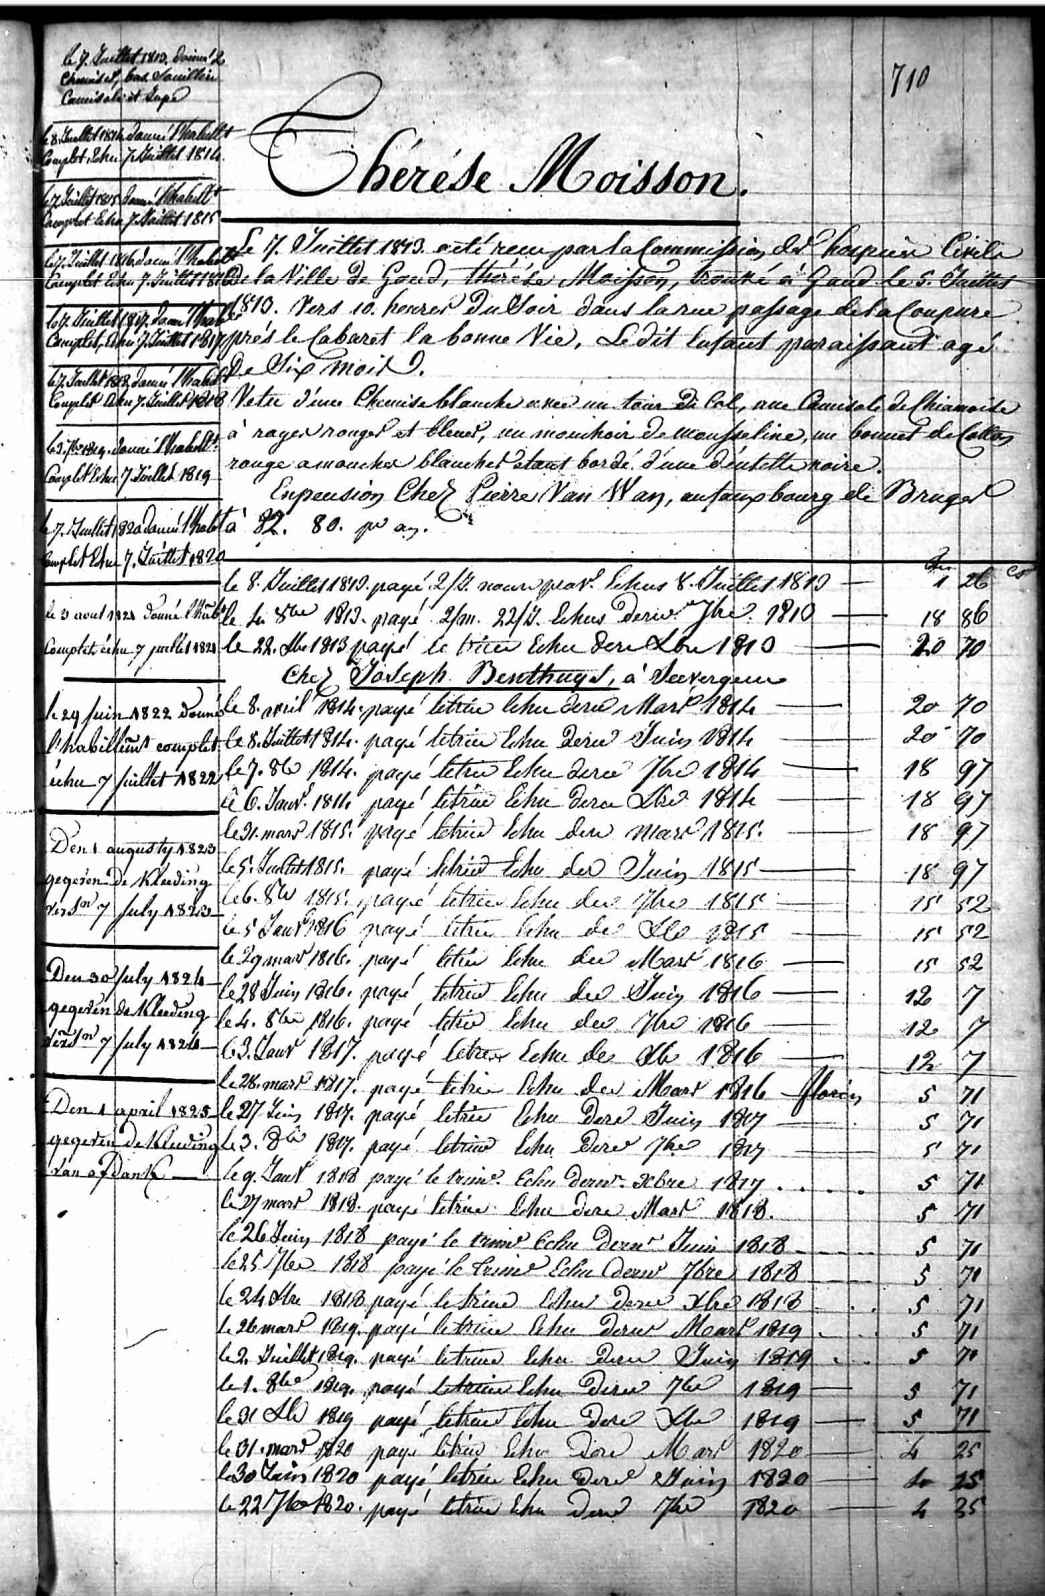 710
le 7. Juillet 1813. donné 2
Chemises, bas Souillier
Camisole et Jupe
le 8. Juillet 1814 donné l'habillt
Complet, Echu 7 Juillet 1814.
le 7 Juillet 1815 donné l'habillt
Complet Echu 7 Juillet 1815
le 7. Juillet 1816 donné l'habillt
Complet Echu 7. Juillet 1816
le 7. Juillet 1817. donné l'hab
Complet, Echu 7 Juillet 1817
le 7. Juillet 1818 donné l'habillt
Complet Echu 7. Juillet 1818
le 3. 7bre 1819. donné l'habillt
Complet Echu 7 Juillet 1819
le 7. Juillet 1820 donné l'habt
Complet Echu 7. Juillet 1820
le 3 aout 1821 donné l'habt
Complet échu 7 juillet 1821
le 29 juin 1822 donné
l'habillemt complet
échu 7 juillet 1822
Den 1 augusty 1823
gegeven De Kleeding
7 july 1823
Den 30 july 1824
gegeven de Kleeding
7 july 1824
Den 1 april 1825
gegeven de Kleeding
Thérése Moisson.
Le 7. Juillet 1813. a été recu par la Commission des hospices Civils
de la Ville de Gand, thérése Moisson, trouvé à Gand le 5. Juillet
1813. Vers 10. heures Du Soir dans la rue passage de la Coupure
près le Cabaret la bonne Vie, Le dit Enfant paraissant agé
De Six mois.
Vetu d'une Chemise blanche avec un tour de Col, une Camisole de Chiamoise
à rayes rouges et bleues, un mouchoir de mousseline, un bonnet de Cotton
rouge a mouches blanches etant bordé d'une dentelle noire.
En pension Chez Pierre Van Wan, au faux bourg de Bruges
à 82. 80. pr an.
le 8. Juillet 1813. payé 2/J. nour prov. Echus 8. Juillet 1813 — 1 26
le 4. 8bre 1813. payé 2/m. 22/J. Echus derer 7bre. 1813 — 18 86
le 22. Xbre 1813 payé le trim Echu dere Xbre 1813 — 20 70
Chez Joseph Benthuys, à Severgem
le 8. avril 1814. payé le trim Echu dere Mars 1814 — 20 70
le 8. Juillet 1814. payé le trim Echu dere Juin 1814 — 20 70
le 7. 8bre 1814. payé le trim Echu dere 7bre 1814 — 18 97
le 6. Janv. 1814 payé le trim Echu dere Xbre 1814 — 18 97
le 31. mars 1815. payé le trim Echu dere mars 1815. — 18 97
le 5. Juillet 1815. payé le trim Echu der Juin 1815 — 18 97
le 6. 8bre 1815. payé le trim Echu der 7bre 1815 — 15 52
le 5 Janv 1816 payé le trim Echu de Xbre 1815 — 15 52
le 29 mars 1816. payé le trim Echu der Mars 1816 — 15 52
le 28 Juin 1816. payé le trim Echu der Juin 1816 — 12 7
le 4. 8bre 1816. payé le trim Echu der 7bre 1816 — 12 7
le 3. Janv 1817. payé le trim Echu de Xbre 1816 — 12 7
le 28. mars 1817. payé le trim Echu der Mars 1816 — florins 5 71
le 27 Juin 1817. payé le trim Echu Dere Juin 1817 — 5 71
le 3. 8bre 1817. payé le trim Echu Dere 7bre 1817 — 5 71
le 9. Janv 1818 payé le trimr. Echu dernr. Xbre 1817. . . . . 5 71
le 27 mars 1818. payé le trim Echu dere Mars 1818. 5 71
le 26 Juin 1818 payé le trimr Echu dernr Juin 1818 — 5 71
le 25 7bre 1818 payé le trimr Echu dernr 7bre 1818 — 5 71
le 24 Xbre 1818 payé le trim Echu dere Xbre 1818 . . . 5 71
le 26 mars 1819. payé le trim Echu dernr Mars 1819 . . . 5 71
le 2. Juillet 1819. payé le trim Echu dere Juin 1819 . . . 5 71
le 1. 8bre 1819. payé le trim Echu dere 7bre 1819 — 5 71
le 31 Xbre 1819 payé le trim Echu dere Xbre 1819 — 5 71
le 31. mars 1820 payé le trim Echu dere Mars 1820 — 4 25
le 30 Juin 1820 payé le trim Echu dere Juin 1820 — 4 25
le 22 7bre 1820. payé le trim Echu dere 7bre 1820 — 4 25